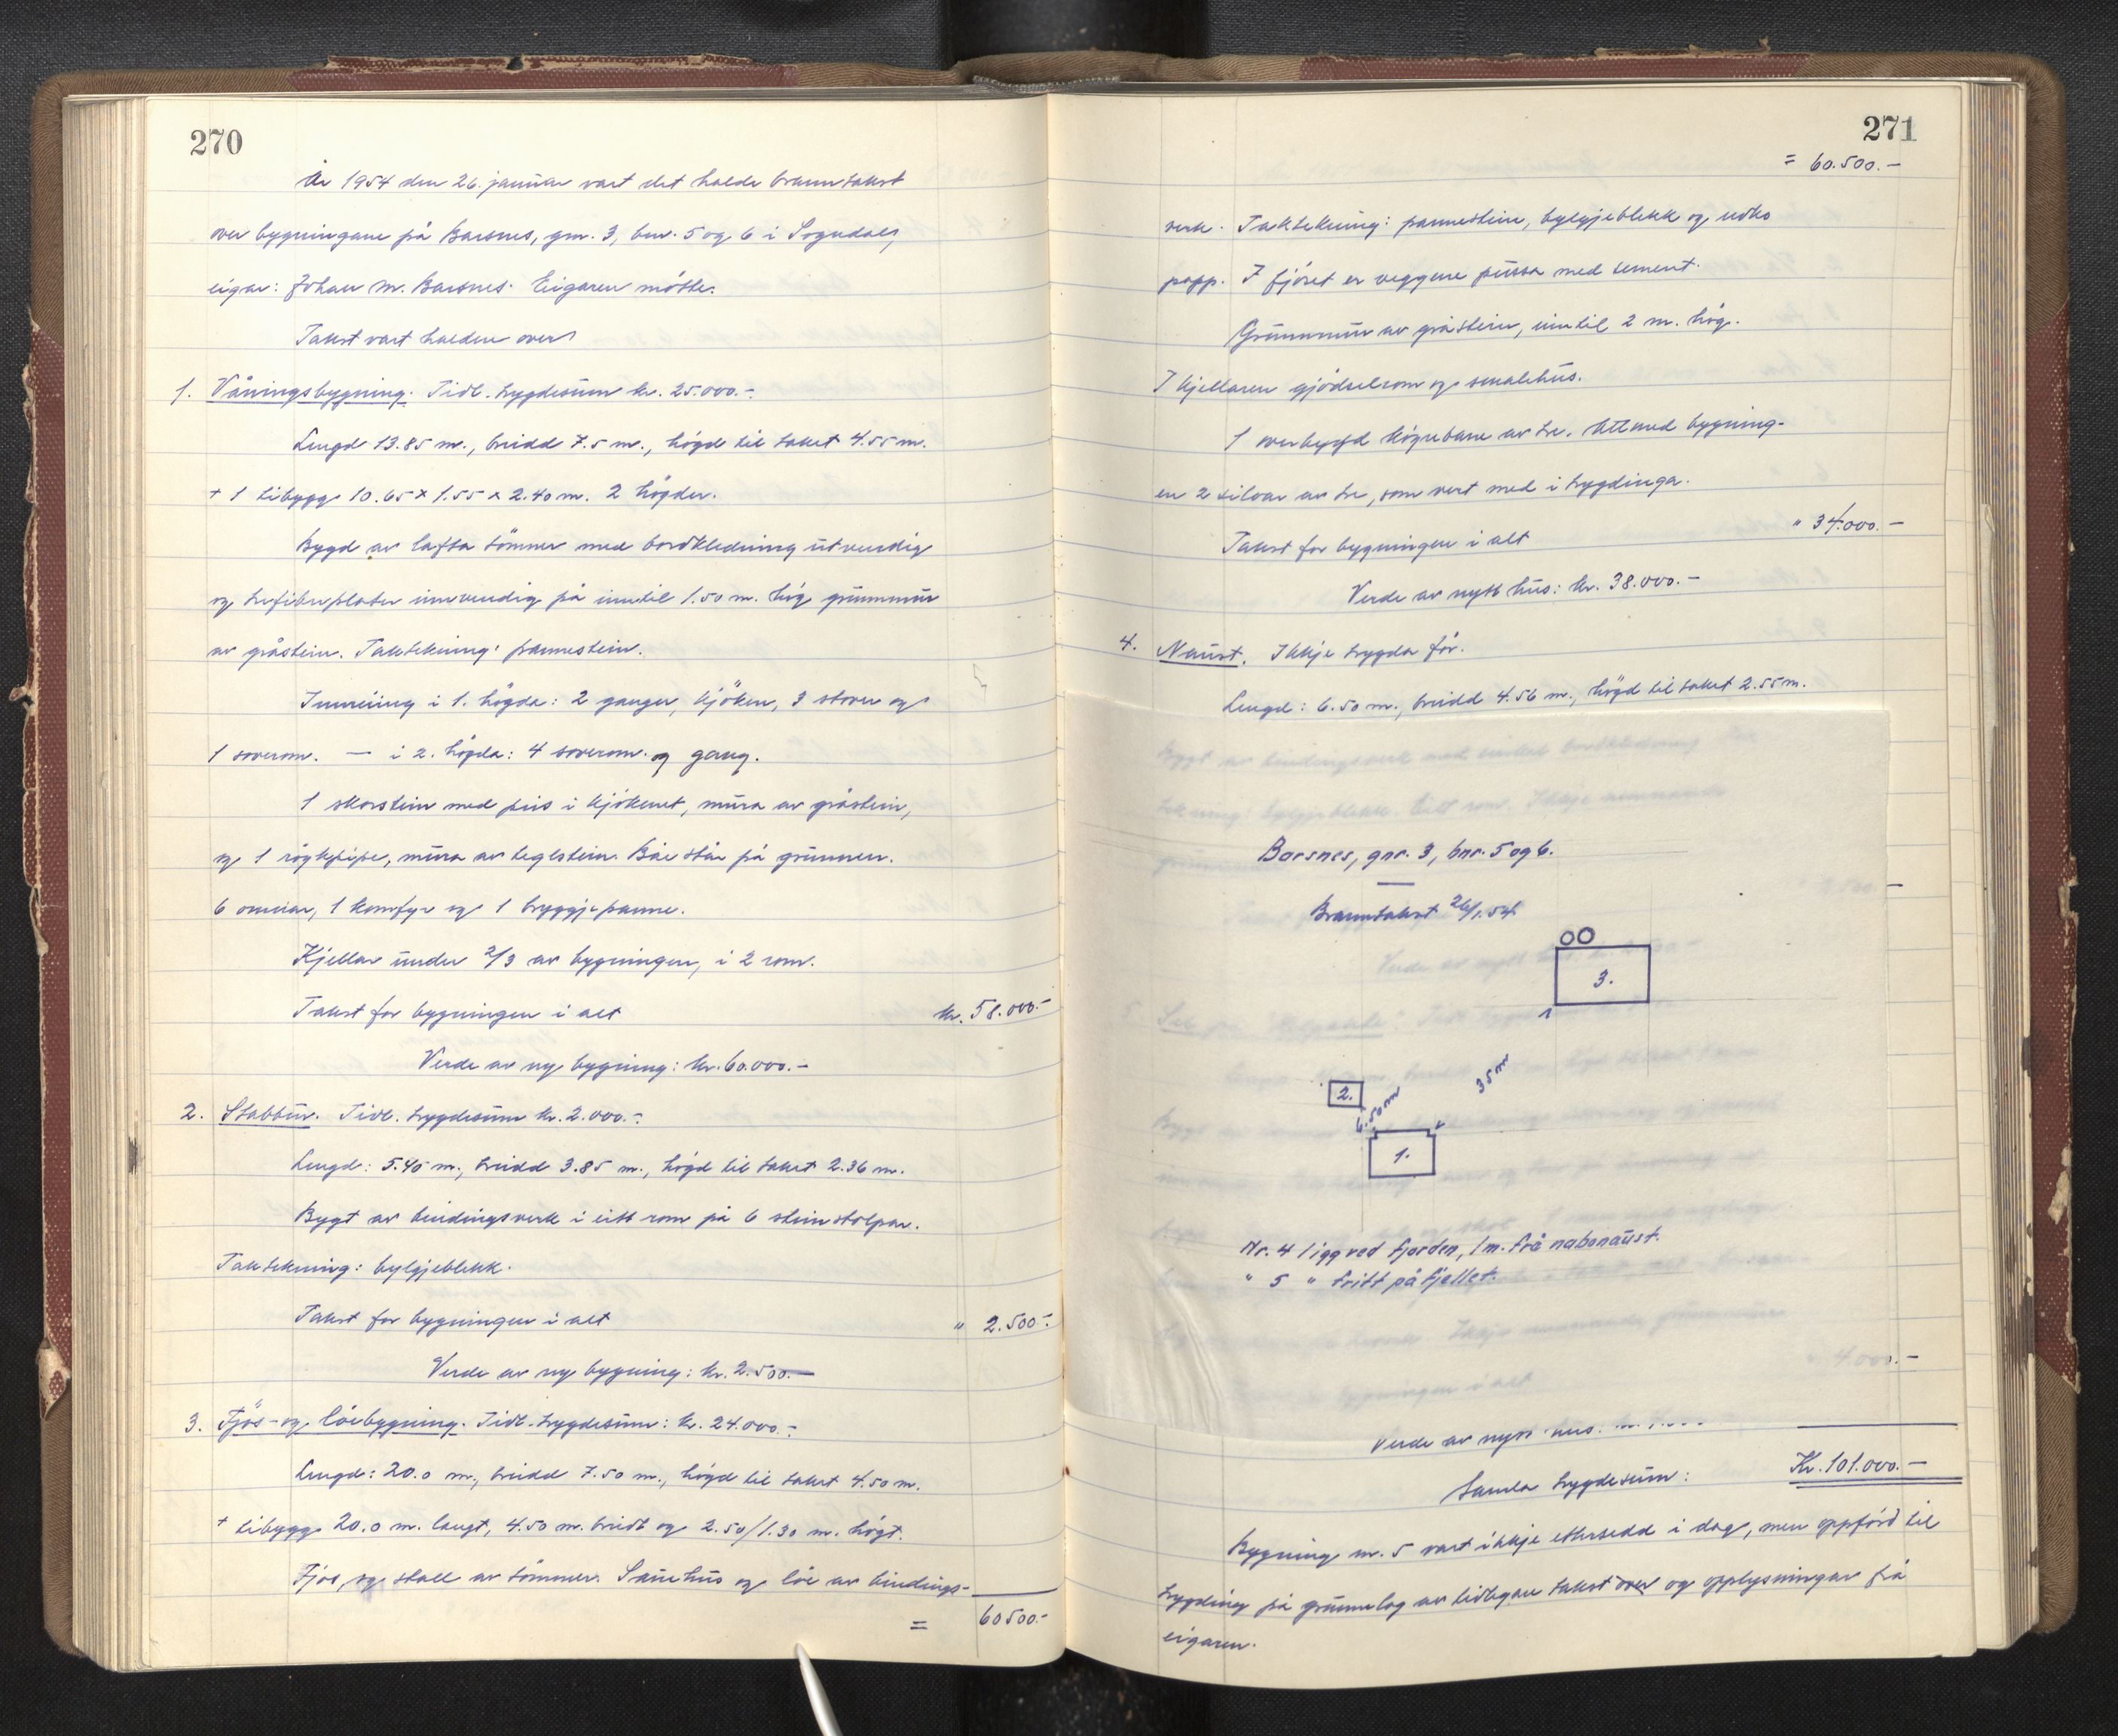 270
År 1954 den 26. januar vart det halde branntakst
over bygningane på Barsnes, gnr. 3, bnr. 5 og 6 i Sogndal,
eigar: Johan M. Barsnes. Eigaren møtte.
Takst vart halden over
1. Våningsbygning. Tidl. trygdesum kr. 25.000.-
Lengd 13.85 m., breidd 7.5 m., högd til taket 4.55 m.
+ 1 tilbygg 10.65 x 1.55 x 2.40 m. 2 högder.
Bygd av lafta tömmer med bordkledning utvendig
og trefiberplater innvendig på inntil 1.50 m. høg grunnmur
av gråstein. Taktekning: pannestein.
Innreiing i 1. högda: 2 ganger, kjöken, 3 stover og
1 soverom. — i 2. högda: 4 soverom og gang.
1 skorstein med peis i kjökenet, mura av gråstein,
og 1 röykpipe, mura av teglstein. Båe står på grunnen.
6 omnar, 1 komfyr og 1 bryggjepanne.
Kjellar under 2/3 av bygningen, i 2 rom.
Takst for bygningen i alt kr. 58.000.-
Verde av ny bygning: kr. 60.000.-
2. Stabbur. Tidl. trygdesum kr. 2.000.-
Lengd: 5.40 m., breidd 3.85 m., högd til taket 2.36 m.
Bygt av bindingsverk i eitt rom på 6 steinstolpar.
Taktekning: bylgjeblekk.
Takst for bygningen i alt " 2.500.-
Verde av ny bygning: kr. 2.500.-
3. Fjös- og löebygning. Tidl. trygdesum: kr. 24.000.-
Lengd: 20.0 m., breidd 7.50 m., högd til taket 4.50 m.
+ tilbygg 20.0 m. langt, 4.50 m. breidt og 2.50/1.30 m. högt.
Fjös, og stall av tömmer. Sauehus og löe av bindings-
= 60500.-
271
= 60.500.-
verk. Taktekning: pannestein, bylgjeblekk og
papp. I fjöset er veggene pussa med sement.
Grunnmur av gråstein, inntil 2 m. høg.
I kjellaren gjödselrom og smalehus.
1 overbygd köyrebane av tre. Attmed bygning-
en 2 siloar av tre, som vert med i trygdinga.
Takst for bygningen i alt " 34.000.-
Verde av nytt hus: kr. 38.000.-
4. Naust. Ikkje trygda för.
Lengd: 6.50 m., breidd 4.56 m., högd til taket 2.55 m.
Barsnes, gnr. 3, bnr. 5 og 6.
Branntakst 26/1.54
3.
35 m
2.
6.50 m
1.
Nr. 4 ligg ved fjorden, 1 m. frå nabonaust.
" 5 " fritt på fjellet.
4.000.-
Verde av nytt hus.
Samla trygdesum: Kr. 101.000.-
Bygning nr. 5 vart ikkje ettersedd i dag, men oppförd til
trygding på grunnlag av tidlegare takst over og opplysningar frå
eigaren.